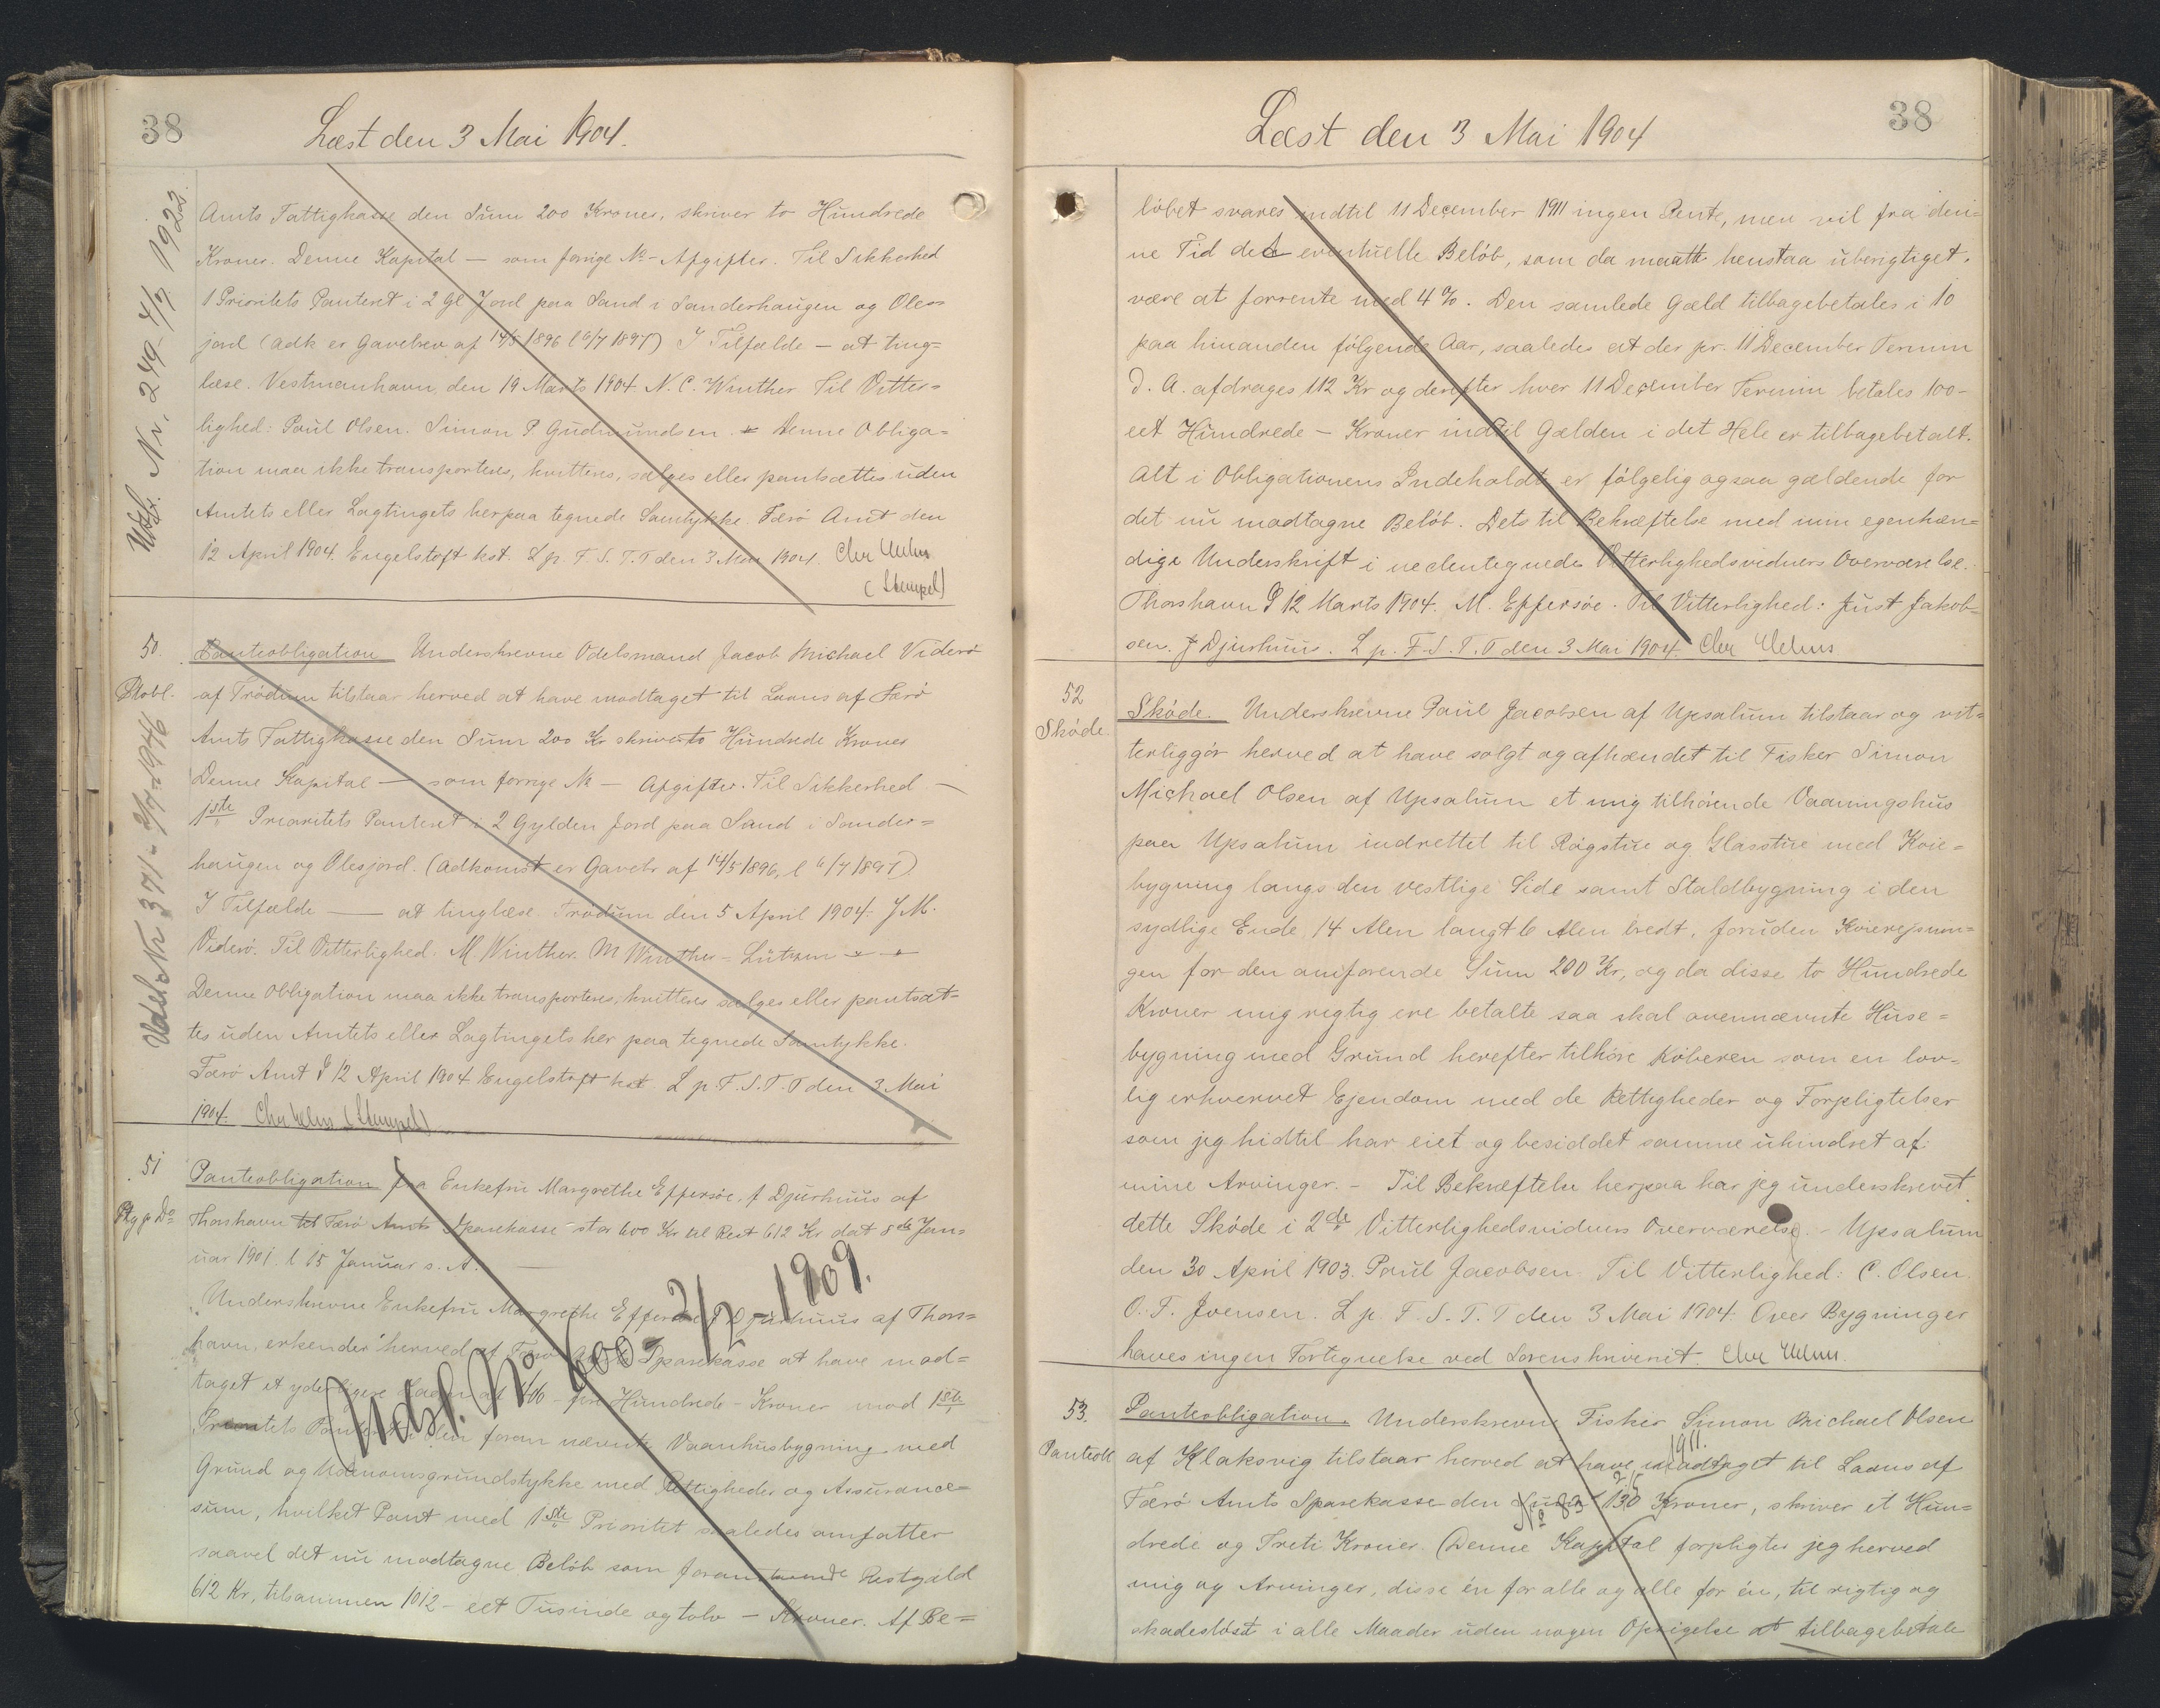 38
Læst den 3 Mai 1904.
Udsl. Nr. 249 4/7 1922
Amts Fattigkasse den Sum 200 Kroner, skriver to Hundrede
Kroner. Denne Kapital — som forrige No - Afgifter. Til Sikkerhed
1 Prioritets Panteret i 2 Gl Jord paa Sand i Sanderhaugen og Oles
jord (Adk er Gavebrev af 14/5 1896 l 6/7 1897) I Tilfælde — at ting=
læse. Vestmanhavn, den 19 Marts 1904. N. C. Winther Til Vitter=
lighed: Poul Olsen. Simon P Gudmundsen. Denne Obliga=
tion maa ikke transporteres, kvitteres, sælges eller pantsættes uden
Amtets eller Lagtingets herpaa tegnede Samtykke. Færö Amt den
12 April 1904. Engelstoft kst. L p. F. S. T. T den 3 Mai 1904.
(Stempel)
50.
Ptobl.
Udsl. Nr 371 - 2/7 - 1946
Panteobligation Underskrevne Odelsmand Jacob Michael Viderö
af Trödum tilstaar herved at have modtaget til Laans af Færö
Amts Fattigkasse den Sum 200 Kr skriver to Hundrede Kroner
Denne Kapital — som forrige No — Afgifter. Til Sikkerhed —
1ste Prioritets Panteret i 2 Gylden Jord paa Sand i Sander=
haugen og Olesjord. (Adkomst er Gavebr af 14/5 1896, l 6/7 1897)
I Tilfælde — at tinglæse. Trödum den 5 April 1904. J. M.
Viderö. Til Vitterlighed. M. Winther. M Winther - Lützen
Denne Obligation maa ikke transporteres, kvitteres sælges eller pantsæt=
tes uden Amtets eller Lagtingets her paa tegnede Samtykke.
Færö Amt d 12 April 1904 Engelstoft kst. L p. F. S. T. T den 3 Mai
1904. (Stempel)
51
Panteobligation fra Enkefru Margrethe Effersöe, f Djurhuus af
Thorshavn til Færö Amts Sparekasse stor 600 Kr til Rest 612 Kr dat 8de Jan=
uar 1901. l 15 Januar s. A.
Underskrevne Enkefru Margrethe Effersöe f Djurhuus af Thors=
havn, erkender herved af Færö Amts Sparekasse at have mod=
taget et yderligere Laan af 400 - fire Hundrede - Kroner mod 1ste
Prioritets Panteret i den foran nævnte Vaanhusbygning med
Grund og Udenomsgrundstykke med Rettigheder og Assurance=
sum, hvilket Pant med 1ste Prioritet saaledes omfatter
saavel det nu modtagne Belöb som foranstaaende Restgæld
612 Kr, tilsammen 1012 - eet Tusinde og tolv - Kroner. Af Be=
Udsl. No 600 - 2/12 - 1909.
38
Læst den 3 Mai 1904
löbet svares indtil 11 December 1911 ingen Rente, men vil fra den=
ne Tid det eventuelle Belöb, som da maatte henstaa uberigtiget.
være at forrente med 4 %. Den samlede Gæld tilbagebetales i 10
paa hinanden fölgende Aar, saaledes at der pr. 11 December Termin
d. A. afdrages 112 Kr og derefter hver 11 December Termin betales 100 -
eet Hundrede - Kroner indtil Gælden i det Hele er tilbagebetalt.
Alt i Obligationens Indeholdt er fölgelig ogsaa gældende for
det nu modtagne Belöb. Dets til Bekræftelse med min egenhæn=
dige Underskrift i nedentegnede Vitterlighedsvidners Overværelse.
Thorshavn d 12 Marts 1904. M. Effersöe. Til Vitterlighed: Just Jakob=
sen. J Djurhuus. L p. F. S. T. T den 3 Mai 1904.
52
Sköde.
Sköde. Underskrevne Poul Jacobsen af Upsalum tilstaar og vit=
terliggör herved at have solgt og afhændet til Fisker Simon
Michael Olsen af Upsalum et mig tilhörende Vaaningshus
paa Upsalum indrettet til Rögstue og Glasstue med Kvie=
bygning langs den vestlige Side samt Staldbygning i den
sydlige Ende 14 Alen langt 6 Alen bredt, foruden
gen for den anförende Sum 200 Kr, og da disse to Hundrede
Kroner mig rigtig ere betalte saa skal ovennævnte Huse=
bygning med Grund herefter tilhöre Köberen som en lov=
lig erhvervet Ejendom med de Rettigheder og Forpligtelser
som jeg hidtil har eiet og besiddet samme uhindret af
mine Arvinger. - Til Bekræftelse herpaa har jeg underskrevet
dette Sköde i 2de Vitterlighedsvidners Overværelse. - Upsalum
den 30 April 1903. Poul Jacobsen. Til Vitterlighed: C. Olsen
O. F. Joensen. L p. F. S. T. T den 3 Mai 1904. Over Bygninger
haves ingen Fortegnelse ved Sorenskriveriet.
53.
Panteobl
Panteobligation. Underskrevne Fisker Simon Michael Olsen
af Klaksvig tilstaar herved at have modtaget til Laans af
Færö Amts Sparekasse den Sum 130 Kroner, skriver et Hun=
drede og Treti Kroner. (Denne Kapital forpligter jeg herved
mig og Arvinger, disse én for alle og alle for én, til rigtig og
skadeslöst i alle Maader uden nogen Opsigelse at tilbagebetale
No 83 2/5 1911.